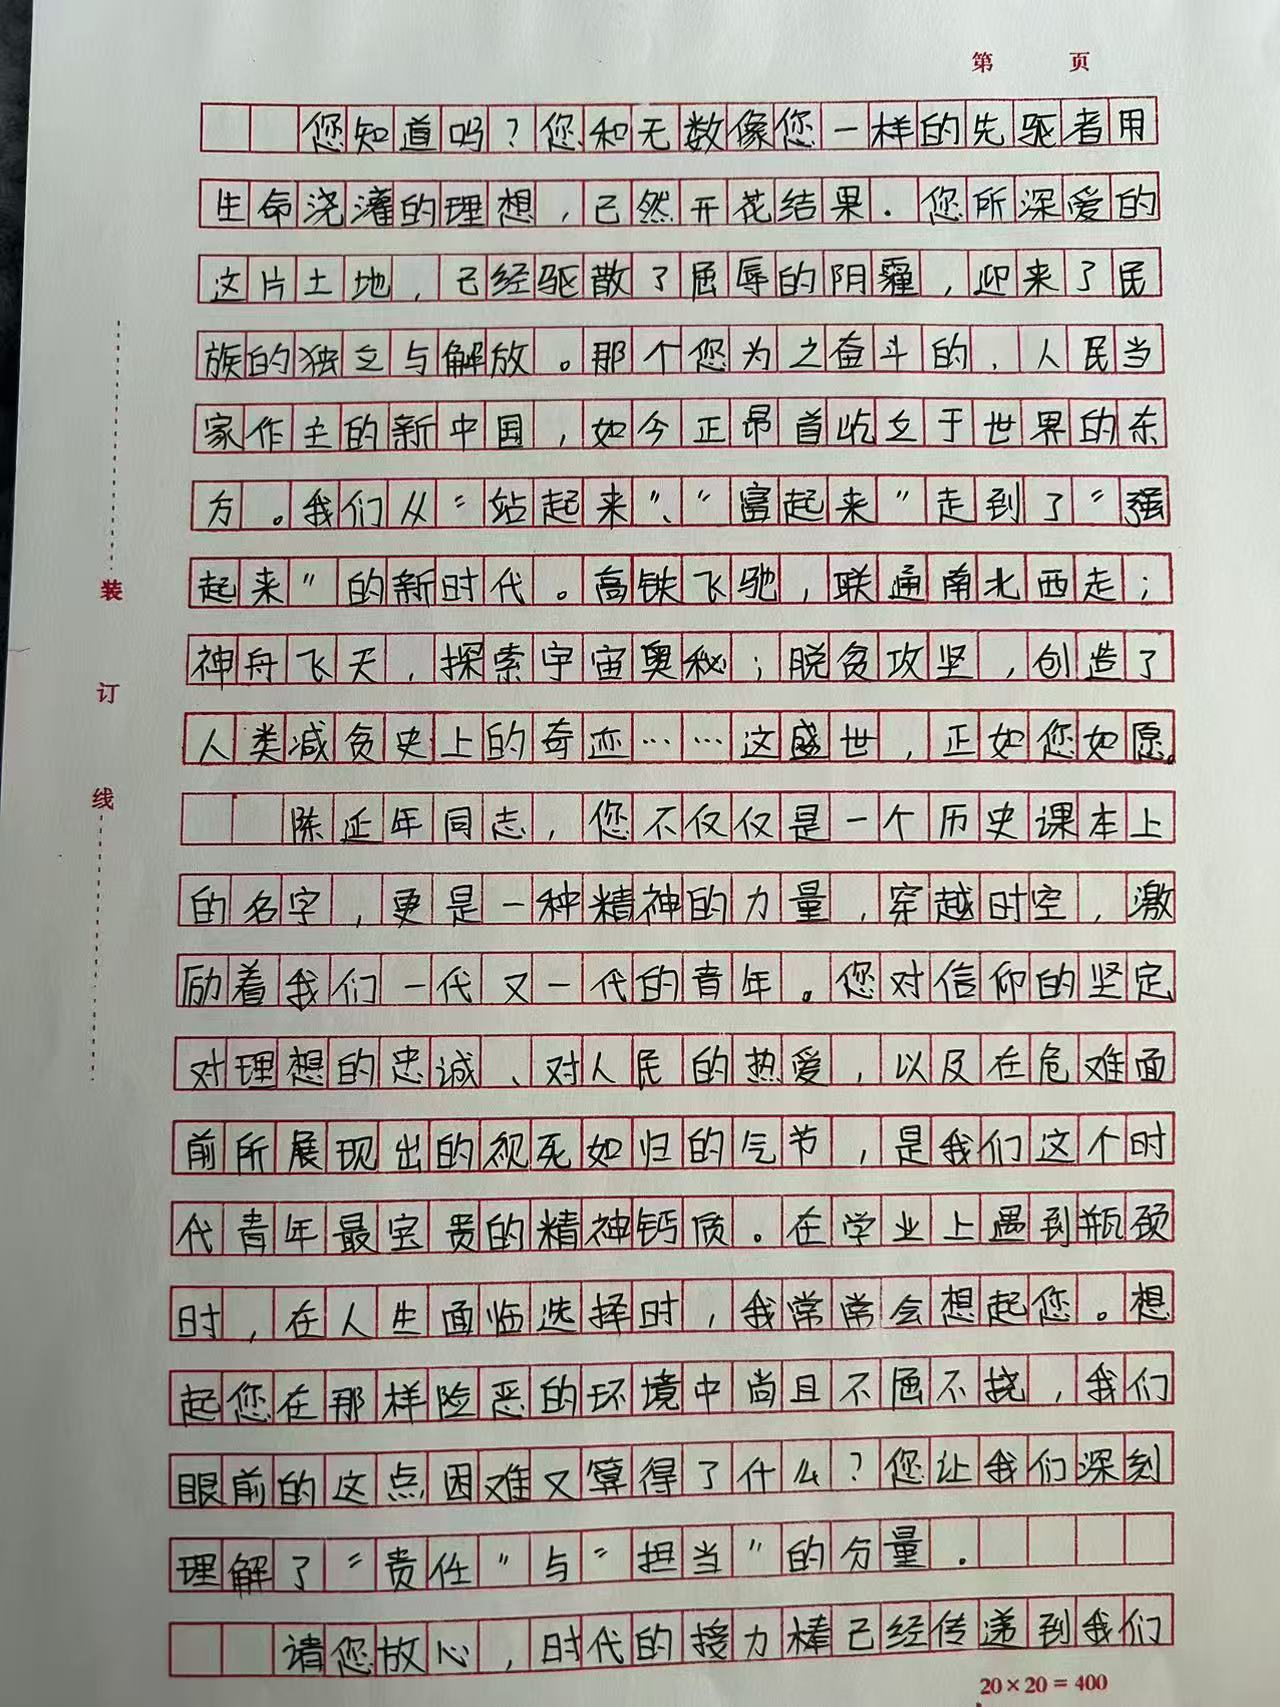 第 页
您知道吗？您和无数像您一样的先驱者用
生命浇灌的理想，已然开花结果．您所深爱的
这片土地，已经驱散了屈辱的阴霾，迎来了民
族的独立与解放。那个您为之奋斗的、人民当
家作主的新中国，如今正昂首屹立于世界的东
方。我们从“站起来”、“富起来”走到了“强
起来”的新时代。高铁飞驰，联通南北西走；
神舟飞天，探索宇宙奥秘；脱贫攻坚，创造了
人类减贫史上的奇迹……这盛世，正如您如愿。
陈延年同志，您不仅仅是一个历史课本上
的名字，更是一种精神的力量，穿越时空，激
励着我们一代又一代的青年。您对信仰的坚定、
对理想的忠诚、对人民的热爱，以及在危难面
前所展现出的视死如归的气节，是我们这个时
代青年最宝贵的精神钙质。在学业上遇到瓶颈
时，在人生面临选择时，我常常会想起您。想
起您在那样险恶的环境中尚且不屈不挠，我们
眼前的这点困难又算得了什么？您让我们深刻
理解了“责任”与“担当”的分量．
请您放心，时代的接力棒已经传递到我们
装 订 线
20×20=400